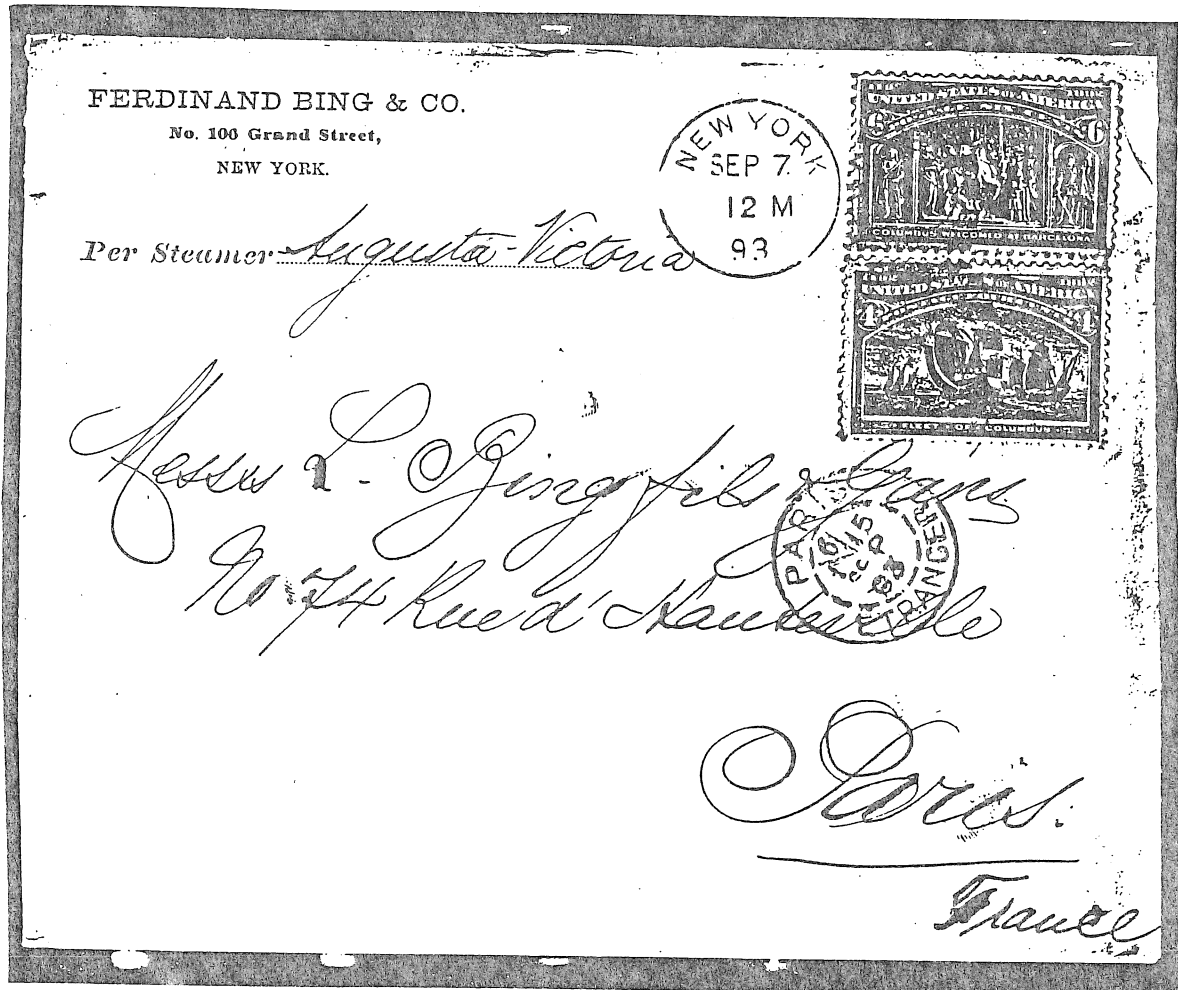 FERDINAND BING & CO.
No. 106 Grand Street,
NEW YORK.
Per Steamer Augusta-Victoria
NEW YORK
SEP 7
12 M
93
UNITED STATES OF AMERICA
6 6
COLUMBUS WELCOMED AT BARCELONA
UNITED STATES OF AMERICA
4 4
FLEET OF COLUMBUS
Messrs L. Bing fils & Gans
No 74 Rue d'Hauteville
PARIS ETRANGER
15 SEPT 93
Paris.
France